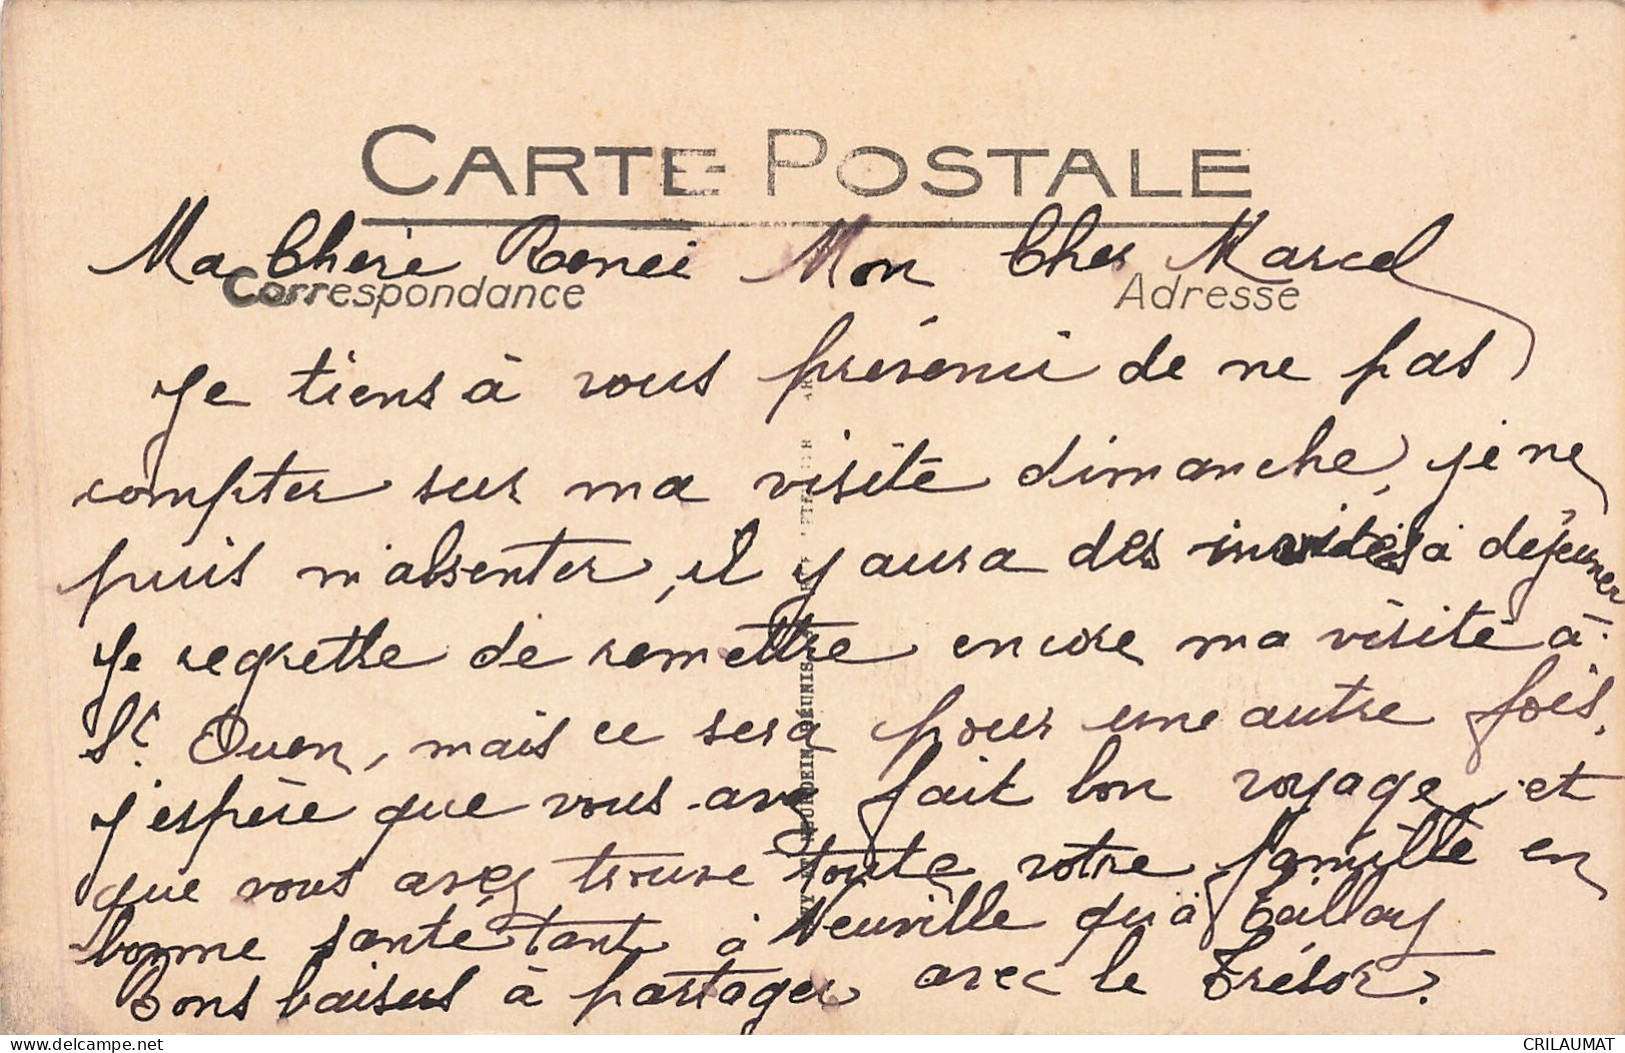 CARTE POSTALE
Ma Cheré Renei Mon Cher Marcel
Correspondance Adresse
Je tiens à vous prévenir de ne pas
compter sur ma visite dimanche, je ne
puis m'absenter, il y aura des invités à déjeuner
Je regrette de remettre encore ma visite à
St. Ouen, mais ce sera pour une autre fois.
j'espère que vous avez fait bon voyage et
que vous avez trouve toute votre famille en
bonne santé tant à Neuville qu'à
Bons baisers à partager avec le Trésor.
delcampe.net
CRILAUMAT